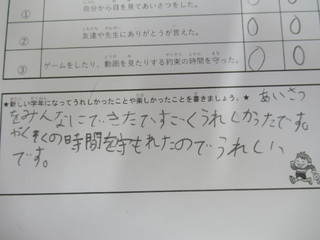 ① 自分から目を見てあいさつをした。
② 友達や先生にありがとうが言えた。 0
③ ゲームをしたり、動画を見たりする約束の時間を守った。 0 0
★新しい学年になってうれしかったことや楽しかったことを書きましょう。★ あいさつ
をみんなにできたですごくうれしかったです。
やくそくの時間を守もれたのでうれしいっ
です。